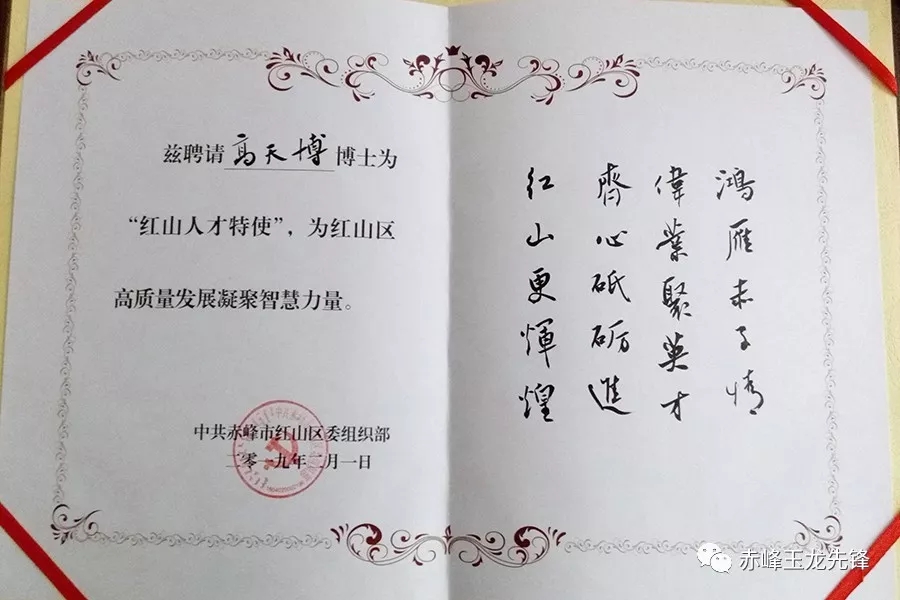 兹聘请高天博博士为
“红山人才特使”，为红山区
高质量发展凝聚智慧力量。
中共赤峰市红山区委组织部
二零一九年二月一日
鴻雁赤子情
偉業聚英才
齊心砥砺進
红山更輝煌
赤峰玉龙先锋